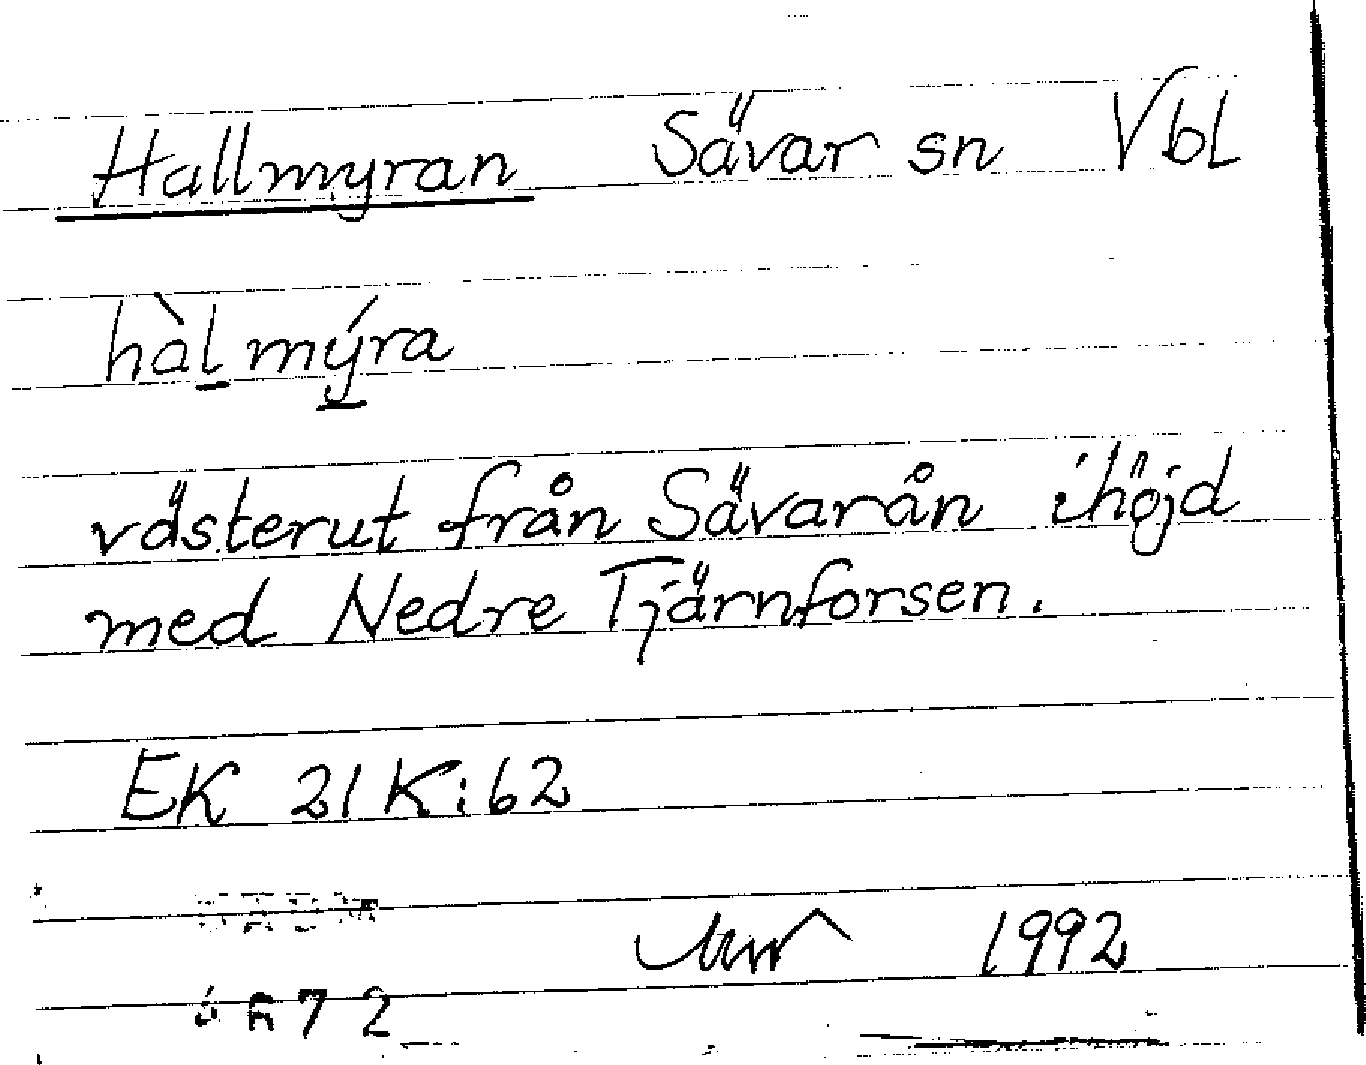 Hallmyran Sävar sn Vbl
hàlmýra
västerut från Sävarån i höjd
med Nedre Tjärnforsen.
EK 21K:62
1992
672